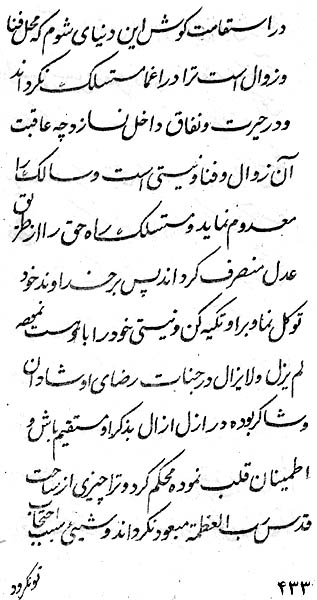 در استقامت کوش این دنیای شوم که محل فنا
و زوال است ترا در اغما مستهلک نگرداند
و در حیرت و نفاق داخل نسازد چه عاقبت
آن زوال و فنا و نیستی است و سالک را
معدوم نماید و مستهلک راه حق را از طریق
عدل منصرف گرداند پس بر خداوند خود
توکل نما و بر او تکیه کن و نیستی خود را با
لم یزل و لا یزال در جنات رضای او شادان
و شاکر بوده در ازل ازال بذکر او مستقیم باش و
اطمینان قلب نموده محکم گرد و ترا چیزی از ساحت
قدس رب العظمة مبعود نگرداند و شیئی سبب احتجاب
تو نگردد
۴۳۳